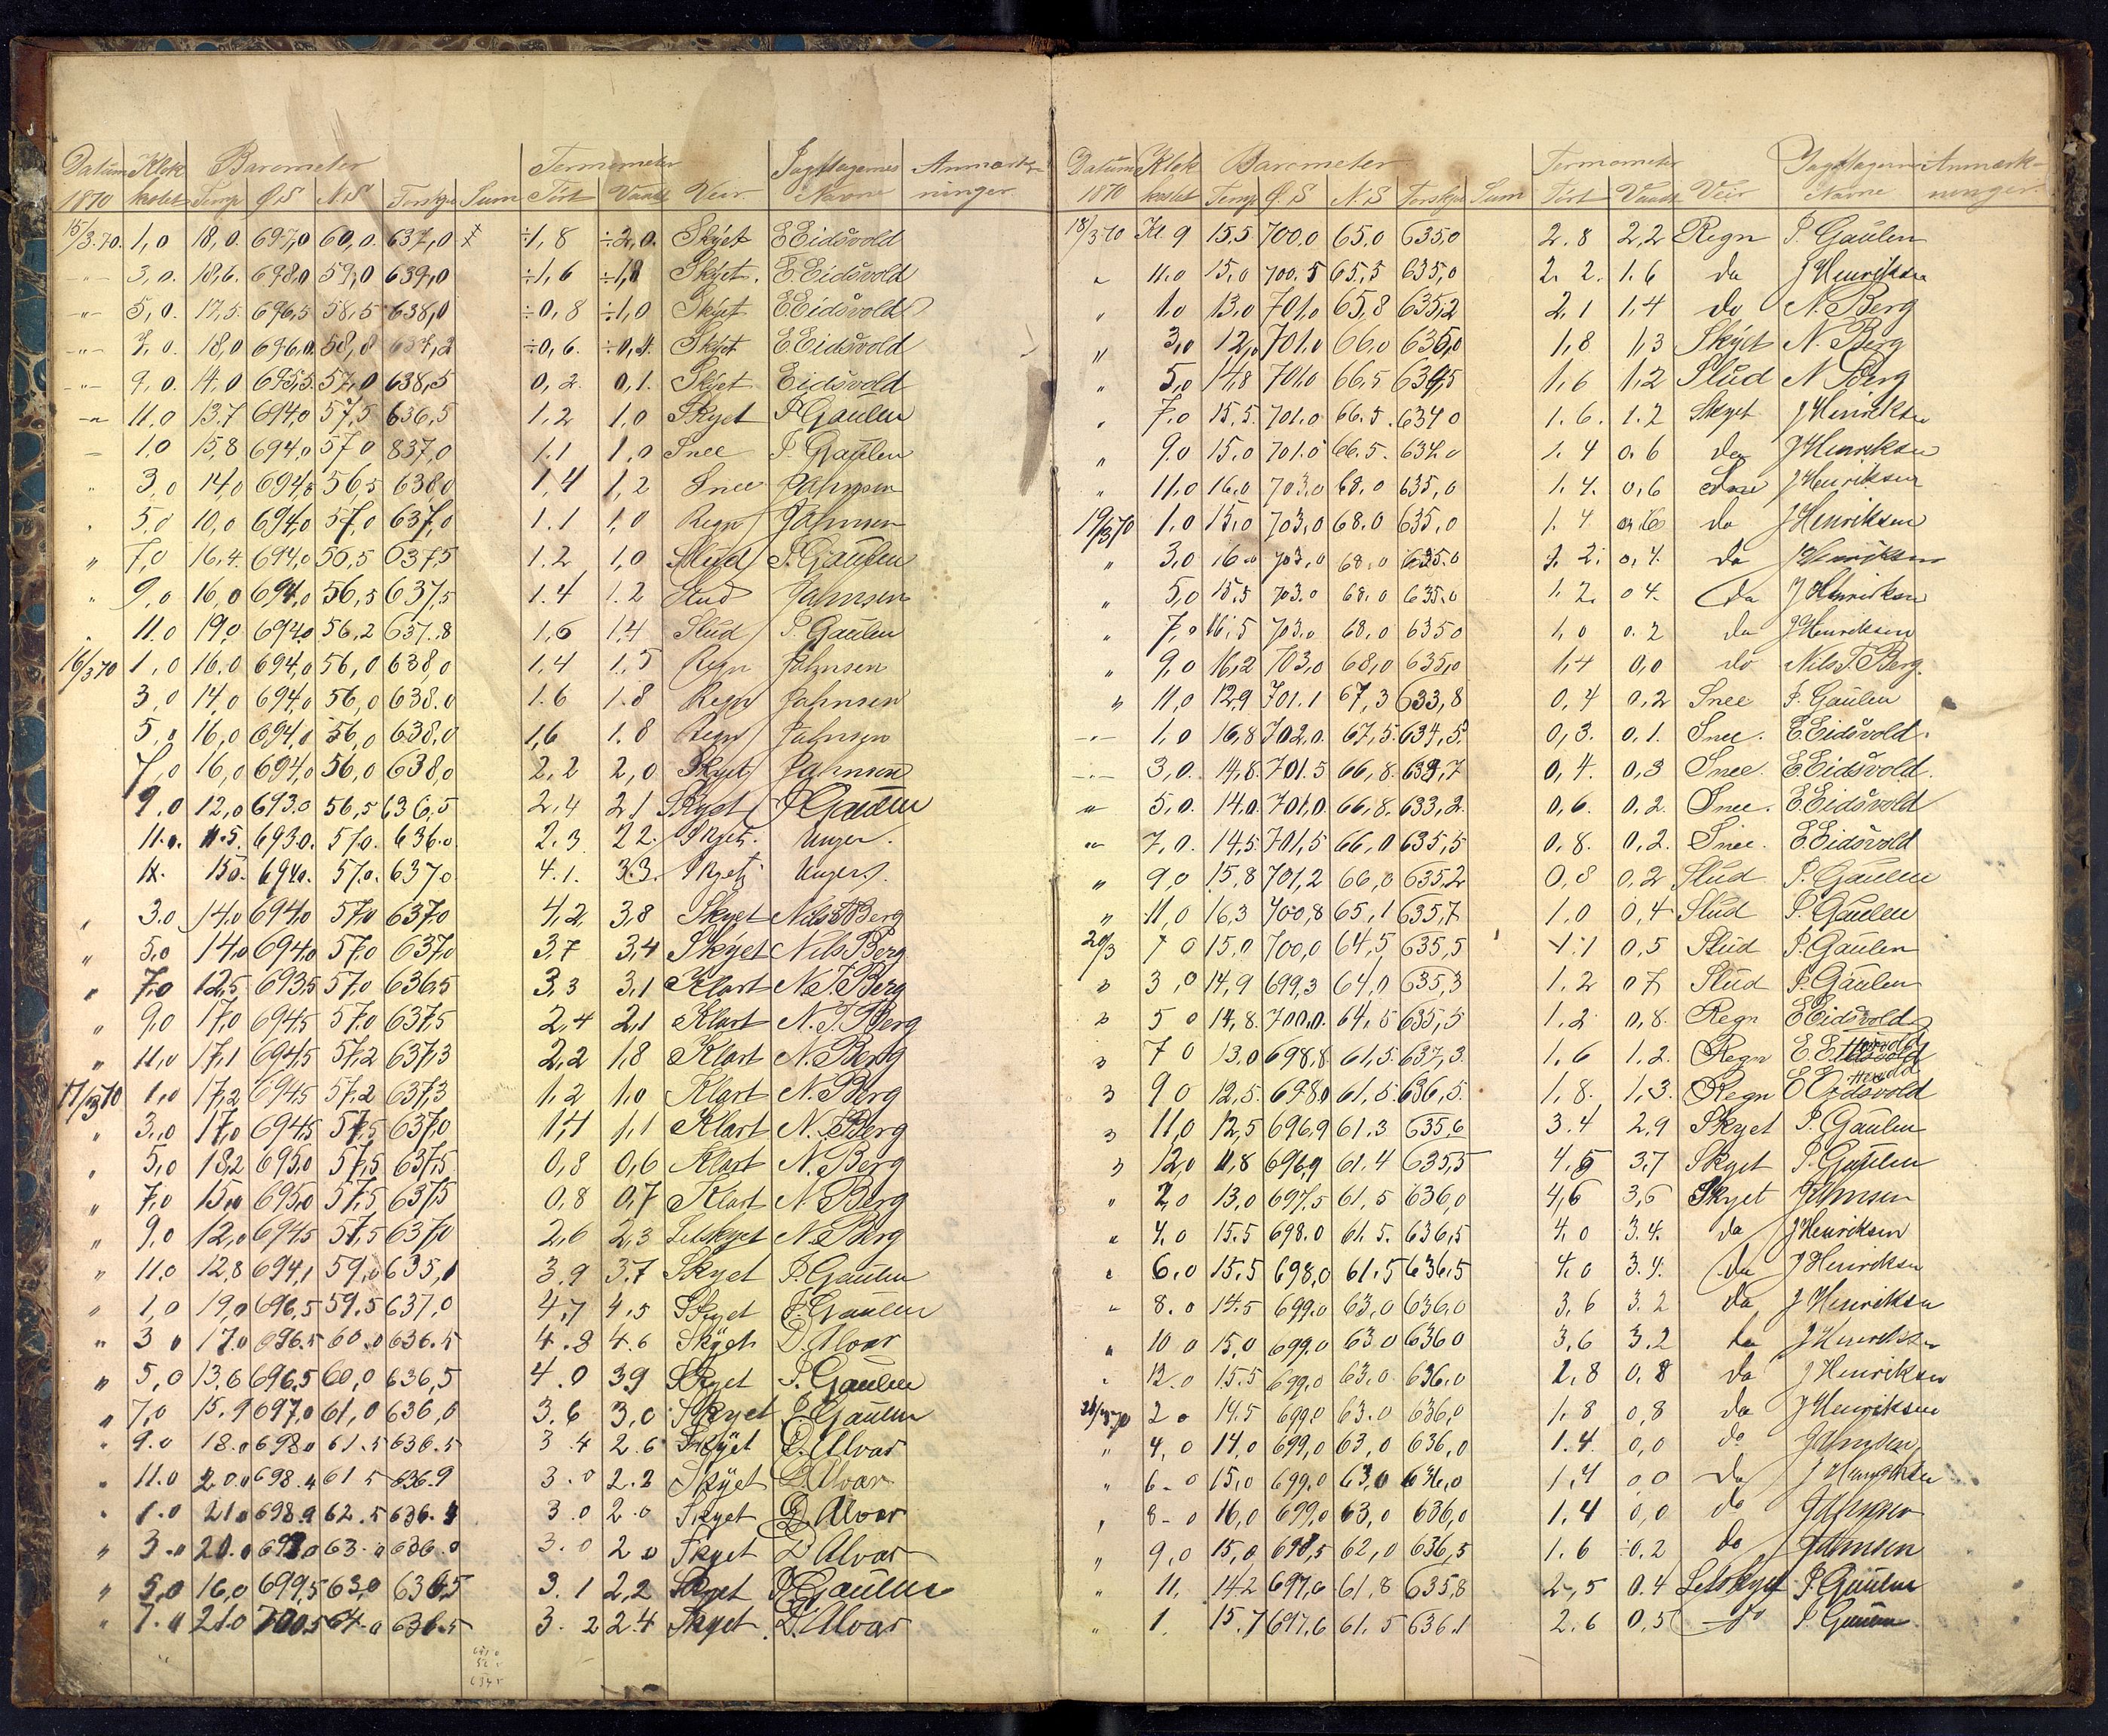 Datum Klok Barometer Termometer Anmærk-
1870 keslet Temp Ø.S N.S Forskjel Sum Tört Vaadt Veir Navne ninger
15/3.70. 1,0 18,0. 697,0 60,0. 637,0 ÷1,8 ÷2,0. Skyet E Eidsvold
-"- 3,0. 18,6. 698,0 59,0 639,0 ÷1,6 ÷1,8 Skyet. E. Eidsvold
-"- 5,0. 17,5. 696,5 58,5 638,0 ÷0,8 ÷1,0 Skyet E. Eidsvold
-"- 7,0. 18,0 696,0. 58,8 637,2 ÷0,6. ÷0,4. Skyet E. Eidsvold
-"- 9,0. 14,0 695,5. 57,0 638,5 0,2. 0,1. Skyet Eidsvold
-"- 11,0 13.7 694,0 57,5 636,5 1.2 1,0 Skyet P Gaulen
1,0 15,8 694,0 57,0 837,0 1.1 1,0 Snee P. Gaulen
" 3,0 14,0 694,5 56,5 638,0 1,4 1,2 Snee Jahnsen
" 5,0 10,0 694,0 57,0 637,0 1.1 1,0 Regn Jahnsen
" 7,0 16,4. 694,0 56,5 637,5 1.2 1,0 Slud P. Gaulen
" 9,0 16,0 694,0 56,5 637,5 1.4 1.2 Slud Jahnsen
" 11.0 19,0 694,0 56,2 637.8 1,6 1,4 Slud P. Gaulen
16/3 70 1,0 16.0 694,0 56,0 638,0 1,4 1,5 Regn Jahnsen
3,0 14,0 694,0 56,0 638.0 1.6 1.8 Regn Jahnsen
5,0 16,0 694,0 56,0 638,0 1,6 1.8 Regn Jahnsen
7,0 16,0 694,0 56,0 638,0 2,2 2,0 Skyet Jahnsen
9.0 12,0 693.0 56,5 636,5 2,4 2,1 Skyet P Gaulen
11.0. 11.5. 693.0. 57.0. 636.0 2.3 2.2. Skyet. Unger.
15.0. 694.0. 57.0. 637.0 4.1. 3.3. Skyet. Unger.
" 3.0 14,0 694,0 57,0 637,0 4,2 3,8 Skyet Nils T Berg
" 5,0 14,0 694,0 57,0 637,0 3,7 3,4 Skyet Nils Berg
" 7,0 12,5 693,5 57,0 636,5 3,3 3,1 Klart N. T. Berg
" 9,0 17,0 694,5 57,0 637,5 2,4 2,1 Klart N. T. Berg
" 11,0 17,1 694,5 57,2 637,3 2,2 1,8 Klart N. Berg
17/3 70 1,0 17,2 694,5 57,2 637,3 1,2 1,0 Klart N. Berg
" 3,0 17,0 694,5 57,5 637,0 1,4 1,1 Klart N. Berg
" 5,0 18,2 695,0 57,5 637,5 0,8 0,6 Klart N. Berg
" 7,0 15,0 695,0 57,5 637,5 0,8 0,7 Klart N Berg
" 9,0 12,0 694,5 57,5 637,0 2,6 2,3 Letskyet N. Berg
" 11,0 12,8 694,1 59,0 635,1 3.9 3.7 Skyet P. Gaulen
" 1,0 19,0 696,5 59.5 637,0 4,7 4.5 Skyet P Gaulen
" 3 0 17.0 696.5 60.0 636.5 4.8 4.6 Skyet D. Alvar
" 5,0 13,6 696,5 60,0 636,5 4.0 3.9 Skyet P. Gaulen
" 7,0 15.9 697,0 61,0 636,0 3.6 3,0 Skyet P Gaulen
" 9.0 18.0 698.0 61.5 636.5 3.4 2.6 Skyet D. Alvar
" 11.0 20.0 698.4 61 5 636.9 3.0 2.2 Skyet D. Alvar
" 1.0 21.0 698.9 62.5 636.4 3.0 2.0 Skyet D. Alvar
" 3.0 20.0 63.0 636.0 3.0 2.0 Skyet D Alvar
" 5,0 16,0 699,5 63,0 636,5 3.1 2,2 Skyet P Gaulen
" 7.0 21.0 700.5 64.0 636.5 3.2 2.4 Skyet D. Alvar
Datum Klok Barometer Termometer Anmærk-
1870 keslet Temp Ø.S N.S Forskjel Sum Tört Vaadt Veir Navne ninger.
18/3 70 Kl. 9 15.5 700.0 65.0 635,0 2.8 2,2 Regn P. Gaulen
" 11.0 15,0 700.5 65,5 635,0 2.2. 1.6 do J Henriksen
" 1,0 13,0 701,0 65,8 635,2 2,1 1,4 do N. Berg
" 3,0 12,0 701,0 66,0 635,0 1,8 1,3 Skyet N. Berg
" 5,0 14,8 701,0 66,5 634,5 1,6 1,2 Slud N Berg
" 7,0 15,5. 701.0 66.5. 634 0 1.6. 1.2 Skyet J Henriksen
" 9,0 15,0 701.0 66.5. 634.0 1.4 0.6 do J Henriksen
" 11,0 16.0 703,0 68.0 635,0 1.4. 0,6 Snee J Henriksen
19/3 70 1,0 15,0 703,0 68.0 635,0 1.4 do J Henriksen
" 3,0 16.0 703,0 68.0 635.0 1.2. 0,4. do J Henriksen
" 5,0 15,5 703.0 68.0 635.0 1.2. 0 4. do J Henriksen
" 7,0 16,5 703,0 68,0 635 0 1,0 0.2 do J Henriksen
" 9,0 16,2 703,0 68,0 635,0 1,4 0,0 do Nils T. Berg.
" 11,0 12,9 701.1 67,3 633,8 0,4 0,2 Snee P. Gaulen
-"- 1,0 16,8 702,0. 67,5. 634,5. 0,3. 0,1. Snee. E. Eidsvold.
-"- 3,0. 14,8. 701.5 66,8. 634,7 0,4. 0,3 Snee. E. Eidsvold.
-"- 5,0. 14.0. 701,0. 66,8. 633,2. 0,6. 0,2. Snee. E. Eidsvold
-"- 7,0. 14,5. 701,5 66,0 635,5 0,8. 0,2. Snee. E. Eidsvold
" 9,0 15,8 701,2 66,0 635,2 0,8 0,2 Slud P. Gaulen
" 11,0 16,3 700,8 65,1 635,7 1.0 0,4 Slud P. Gaulen
20/3 1 0 15,0 700,0 64,5 635,5 1.1 0,5 Slud P. Gaulen
" 3,0 14,9 699,3 64,0 635,3 1.2 0 7 Slud P. Gaulen
" 5 0 14,8. 700,0. 64,5 635,5 1.2 0,8. Regn E Eidsvold
" 7 0 13.0 698,8 61,5. 637,3. 1,6 1.2. Regn E. Eidsvold
" 9 0 12,5. 698.0 61,5. 636,5. 1,8. 1,3. Regn E Eidsvold
" 11,0 12,5 696,9 61.3 635.6 3.4 2.9 Skyet P. Gaulen
" 12,0 11,8 696,9 61.4 635,5 4,5 3,7 Skyet P. Gaulen
" 2,0 13,0 697,5 61,5 636,0 4,6 3,6 Skyet Jahnsen
" 4,0 15.5 698.0 61.5. 636,5 4,0 3.4. do J Henriksen
" 6,0 15,5 698,0 61.5 636.5 4,0 3.4. do J Henriksen
" 8.0 14.5 699.0 63,0 636.0 3,6 3.2 do J Henriksen
" 10 0 15,0 699.0 63 0 636 0 3,6 3,2 do J Henriksen
" 12.0 15.5 699,0 63.0 636.0 2,8 0,8 do J Henriksen
21/3 70 2 0 14.5 699,0 63.0 636,0 1.8 0,8 do J Henriksen
" 4,0 14,0 699,0 63,0 636,0 1.4. 0,0 do Jahnsen
" 6-0 15,0 699.0 63,0 636,0 1,4 0,0 do J Henriksen
" 8-0 16,0 699,0 63,0 636,0 1,4 0,0 do Jahnsen
" 9,0 15,0 698,5 62,0 636,5 1.6 0.2 do Jahnsen
" 11. 14.2 697,6 61,8 635,8 2,5 0.4 Letskyet P. Gaulen
" 1. 15.7 697,6 61,5 636.1 2.6 0,5 P. Gaulen